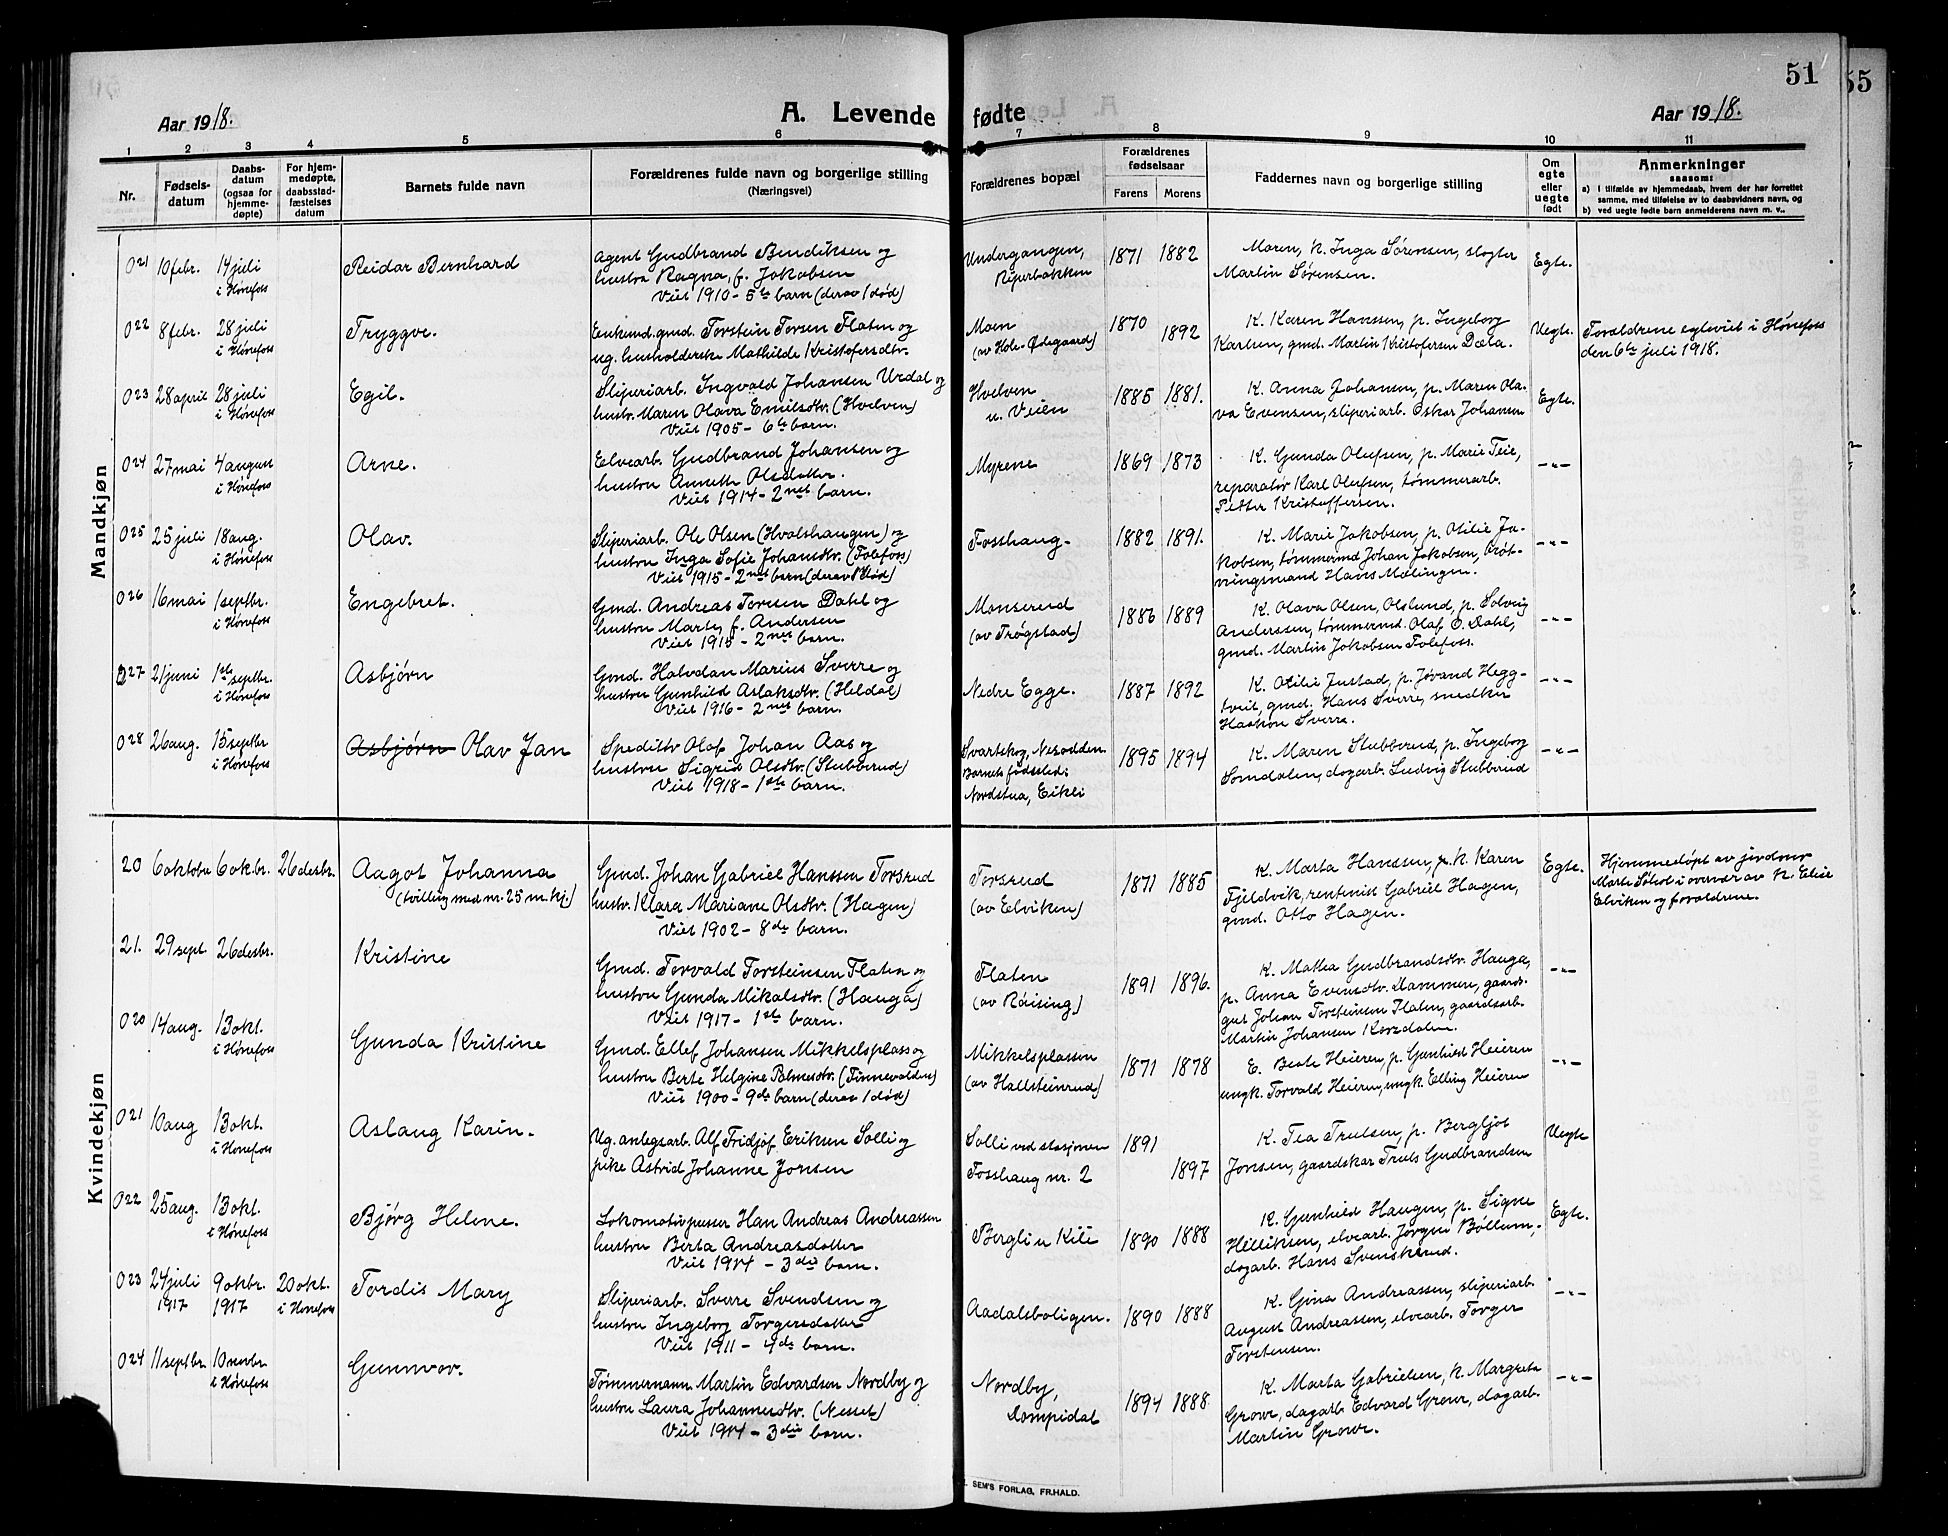 51
55
Aar 1918.
A. Levende fødte
Aar 1918.
1 2 3 4 5 6 7 8 9 10 11
Nr.
Fødselsdatum
Daabsdatum (ogsaa for hjemmedøpte)
For hjemmedøpte, daabsstadfæstelses datum
Barnets fulde navn
Forældrenes fulde navn og borgerlige stilling
(Næringsvei)
Forældrenes bopæl
Forældrenes fødselsaar
Farens Morens
Faddernes navn og borgerlige stilling
Om egte eller uegte født
Anmerkninger
saasom:
a) I tilfælde av hjemmedaab, hvem der har forrettet samme, med tilføielse av to daabsvidners navn, og
b) ved uegte fødte barn anmelderens navn m. v..
Mandkjøn
021 10 febr. 14 juli i Hønefoss
Reidar Bernhard
Agent Gudbrand Bendiksen og
hustru Ragna, f. Jakobsen
Viet 1910 - 5te barn (derav 1 død)
Undergangen,
Riperbakken
1871 1882
Maren, k. Inga Sørensen, slagter
Martin Sørensen.
Egte.
022 8 febr. 28 juli i Hønefoss
Tryggve.
Enkemd. gmd. Torstein Torsen Flaten og
ug. husholderske Mathilde Kristofersdtr.
Moen
(av Hole-Ødegaard)
1870 1892
K. Karen Hanssen, p. Ingeborg
Karlsen, gmd. Martin Kristofersen Dæla.
Uegte.
Forældrene egteviet i Hønefoss
den 6te juli 1918.
023 28 april 28 juli i Hønefoss
Egil.
Sliperiarb. Ingvald Johansen Urdal og
hustr. Maren Olava Emilsdtr. (Hvelven)
Viet 1905 - 6te barn.
Hvelven
u. Veien
1885 1881.
K. Anna Johansen, p. Maren Ola-
va Evensen, sliperiarb. Oskar Johansen
Egte.
024 27 mai 4 august i Hønefoss
Arne.
Elvearb. Gudbrand Johansen og
hustru Annette Olsdatter.
Viet 1914 - 2net barn.
Myrene
1869 1873
K. Gunda Olufsen, p. Marie Teie,
reparatør Karl Olufsen, tømmerarb.
Petter Kristoffersen.
-"-
025 25 juli 18 aug. i Hønefoss
Olav.
Sliperiarb. Ole Olsen (Hvalshaugen) og
hustru Inga Sofie Johansdtr. (Folefoss)
Viet 1915 - 2net barn (derav 1 død)
Fosshaug-
1882 1891.
K. Marie Jakobsen, p. Otilie Ja-
kobsen, tømmermd Johan Jakobsen, brøt-
ningsmand Hans Mælingen.
-"-
026 16 mai 1 septbr. i Hønefoss
Engebret.
Gmd. Andreas Torsen Dahl og
hustru Marte, f. Andersen
Viet 1915 - 2net barn.
Monserud
(av Trøgstad)
1886 1889
K. Olava Olsen, Olslund, p. Solveig
Anderssen, tømmermd. Olaf O. Dahl,
gmd. Martin Jakobsen Folefoss.
-"-
027 21 juni 1ste septbr. i Hønefoss
Asbjørn
Gmd. Halvdan Marius Sverre og
hustru Gunhild Aslaksdtr. (Heldal)
Viet 1916 - 2net barn.
Nedre Egge.
1887 1892
K. Otilie Justad, p. Jøvand Hegg-
tveit, gmd. Hans Sverre, snedker
Haakon Sverre.
-"-
028 26 aug. 15 septbr i Hønefoss
Asbjørn Olav Jan
Speditør Olaf Johan Aas og
hustru Sigrid Olsdtr. (Stubberud)
Viet 1918 - 1ste barn.
Svartskog, Nesodden
Barnets fødested:
Nordstua, Eikli
1895 1894
K. Maren Stubberud, p. Ingeborg
Somdalen, dagarb. Ludvig Stubberud
-"-
Kvindekjøn
20 6 oktobr 6 okbr. 26 desbr.
Aagot Johanna
(tvilling med nr. 25 m.kj.)
Gmd. Johan Gabriel Hanssen Torsrud
hustr. Klara Mariane Olsdtr. (Hagen)
Viet 1902 - 8de barn.
Torsrud
(av Elviken)
1871 1885
K. Marta Hansen, p. k. Karen
Fjeldvik, rentenist Gabriel Hagen,
gmd. Otto Hagen.
Egte.
Hjemmedøpt av jordmor
Marte Søhol i overvær av k. Elise
Elviken og forældrene.
21. 29 sept. 26 desbr.
Kristine
Gmd. Torvald Torsteinsen Flaten og
hustru Gunda Mikalsdtr. (Hauga)
Viet 1917 - 1ste barn.
Flaten
(av Røising)
1891 1896.
K. Mathea Gudbrandsdtr. Hauga,
p. Anna Evensdtr. Dammen, gaards-
gut Johan Torsteinsen Flaten, gaardsarb.
Martin Johansen Korsdalen.
-"-
020 14 aug. 13 okt. i Hønefoss
Gunda Kristine
Gmd. Ellef Johansen Mikkelsplass og
hustru Berte Helgine Palmesdtr. (Finnevolden)
Viet 1900 - 9de barn (derav 1 død)
Mikkelsplassen
(av Hallsteinrud)
1871 1878
E. Beate Heieren, p. Gunhild Heieren
ungk. Torvald Heieren, ungk. Elling Heieren
-"-
021 10 aug 13 okt. i Hønefoss
Aslaug Karin.
Ug. anlegsarb. Alf Fridjof Eriksen Solli og
pike Astrid Johanne Jonsen
Solli ved stasjonen
Fosshaug nr. 2
1891 1897
K. Tea Trulsen, p. Bergljot
Jonsen, gaardskar Truls Gudbrandsen
Uegte
022 25 aug. 13 okt. i Hønefoss
Bjørg Helene.
Lokomotivpusser Han Andreas Andreassen
hustru Berta Andreasdatter
Viet 1914 - 3die barn.
Bergli u Kile
1890 1888
K. Gunhild Haugen, p. Signe
Hilliksen, elvearb. Jørgen Bøllum,
dagarb. Hans Svenskerud.
Egte.
023 24 juli 1917 9 okbr. 1917 20 okt. i Hønefoss
Tordis Mary
Sliperiarb. Sverre Svendsen og
hustru Ingeborg Torgersdatter
Viet 1911 - 4de barn.
Aadalsboligen.
1890 1888
K. Gina Andreassen, sliperiarb.
August Andreassen, elvearb. Torger
Torstensen.
-"-
024 11 septbr. 10 novbr. i Hønefoss
Gunnvor.
Tømmermann Martin Edvardsen Nordby og
hustru Laura Johannesdtr. (Nesset)
Viet 1914 - 3die barn.
Nordby,
Dompidal
1894 1888
K. Marta Gabrielsen, k. Margrete
Growe, dagarb. Edvard Growe, dagarb.
Martin Growe.
-"-
SEM'S FORLAG, FR.HALD.